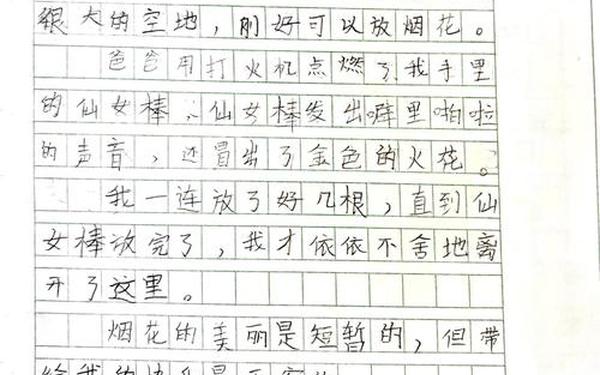 很大的空地，刚好可以放烟花。
爸爸用打火机点燃了我手里
的仙女棒，仙女棒发出噼里啪啦
的声音，还冒出了金色的火花。
我一连放了好几根，直到仙
女棒放完了，我才依依不舍地离
开了这里。
烟花的美丽是短暂的，但带
给我的快乐是